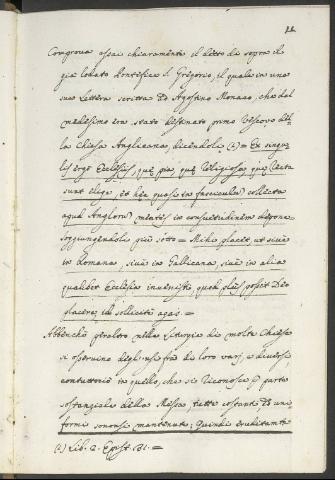 11
Comprova assai chiaramente il detto di sopra il
già lodato Pontefice S. Gregorio, il quale in una
sua Lettera scritta ad Agostino Monaco, che dal
medesimo era stato destinato primo Vescovo del-
la Chiesa Anglicana, dicendole (2) = Ex singu-
lis ergo Ecclesiis, quæ pia, quæ religiosa, quæ recta
sunt elige, et hæc quasi in fasciculum collecta
apud Anglorum mentes in consuetudinem depone
soggiungendole più sotto = Mihi placet, ut sive
in Romana, sive in Gallicana, sive in alia
qualibet Ecclesia invenisti, quod plus possit Deo
placere, id sollicite agas =
Abbenchè peraltro nella Liturgia di molte Chiese
si osservino degl'usi fra di loro varj, e diversi
contuttociò in quello, che si riconosce parte
sostanziale della Messa, tutte costante ed uni-
formi sonosi mantenute; Quindi eruditamte
(2) Lib. 2. Epist. 131. =